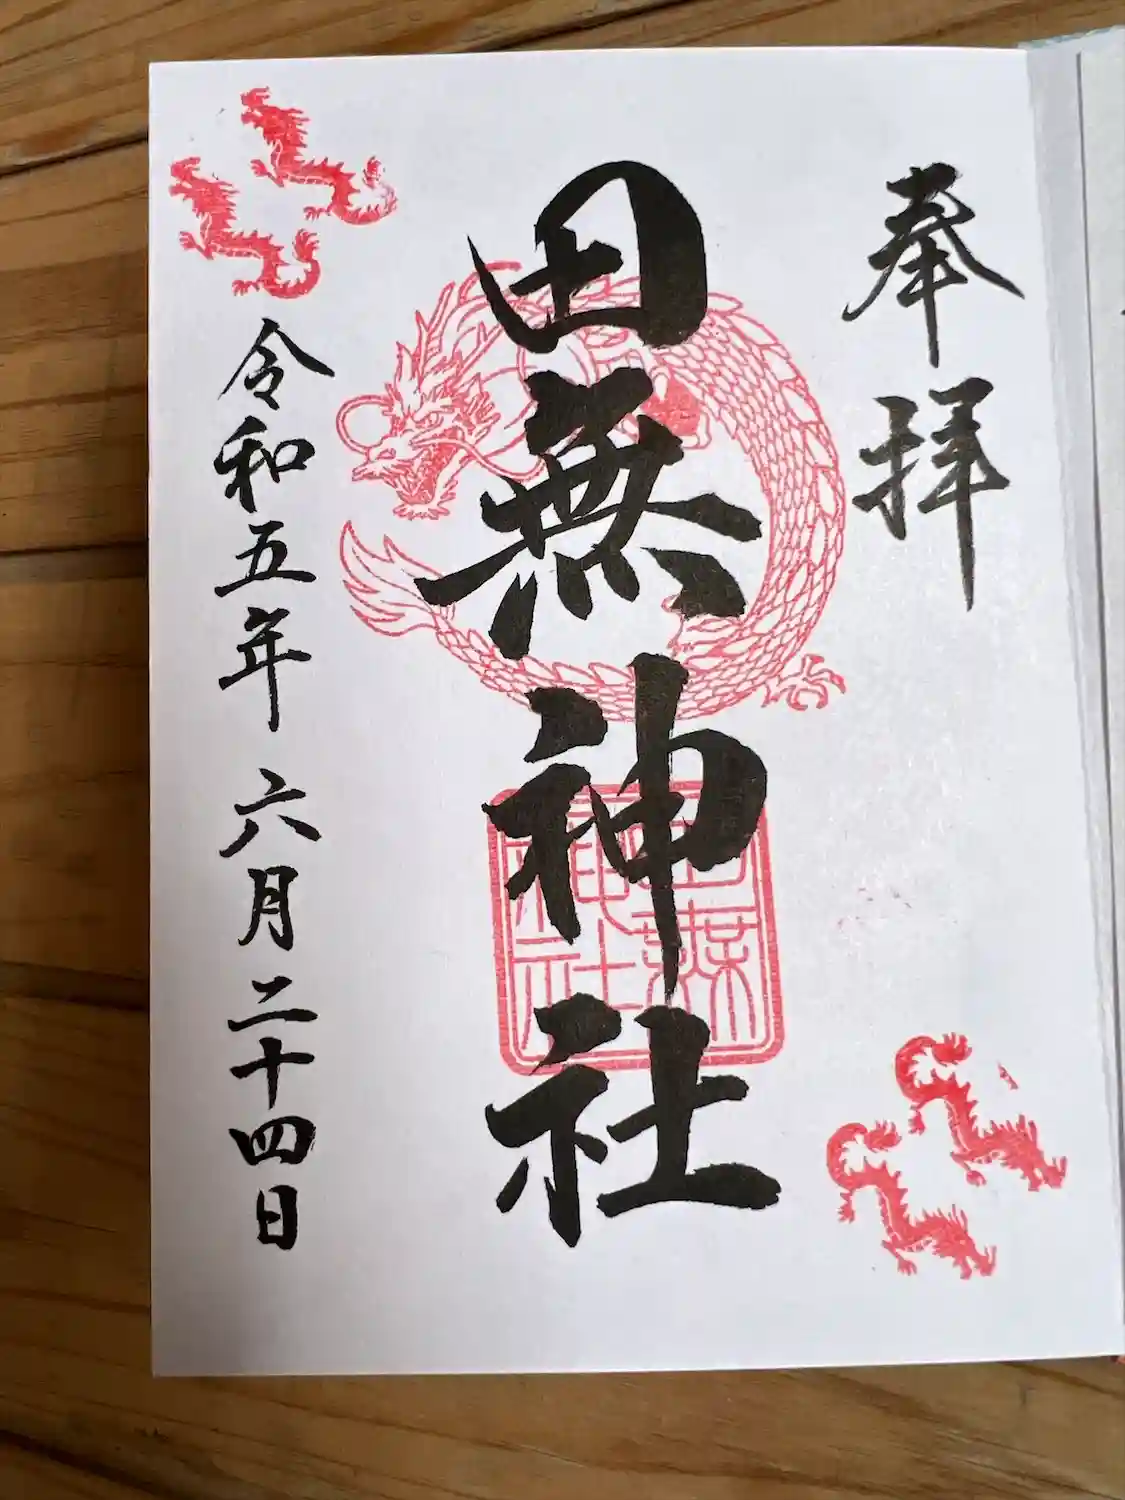 奉拝
田無神社
田無神社
令和五年六月二十四日